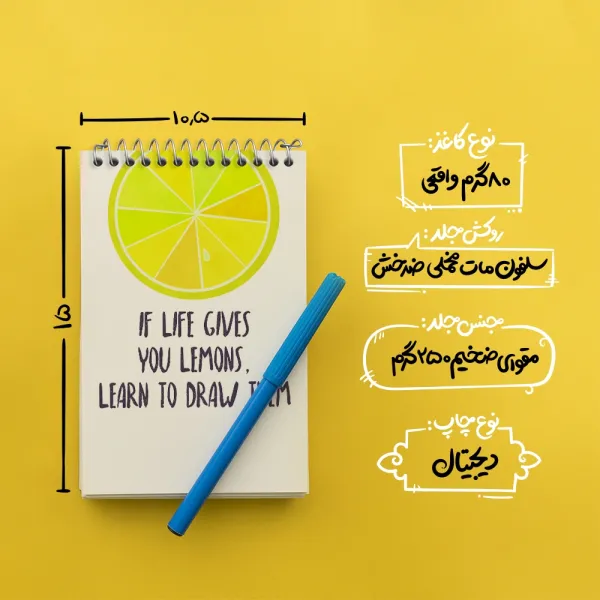 ۱۰٫۵
۱۵
IF LIFE GIVES
YOU LEMONS,
LEARN TO DRAW THEM
نوع کاغذ:
۸۰گرم واقعی
روکش جلد:
سلفون مات مخملی ضدخش
جنس جلد:
مقوای ضخیم ۲۵۰گرم
نوع چاپ:
دیجیتال